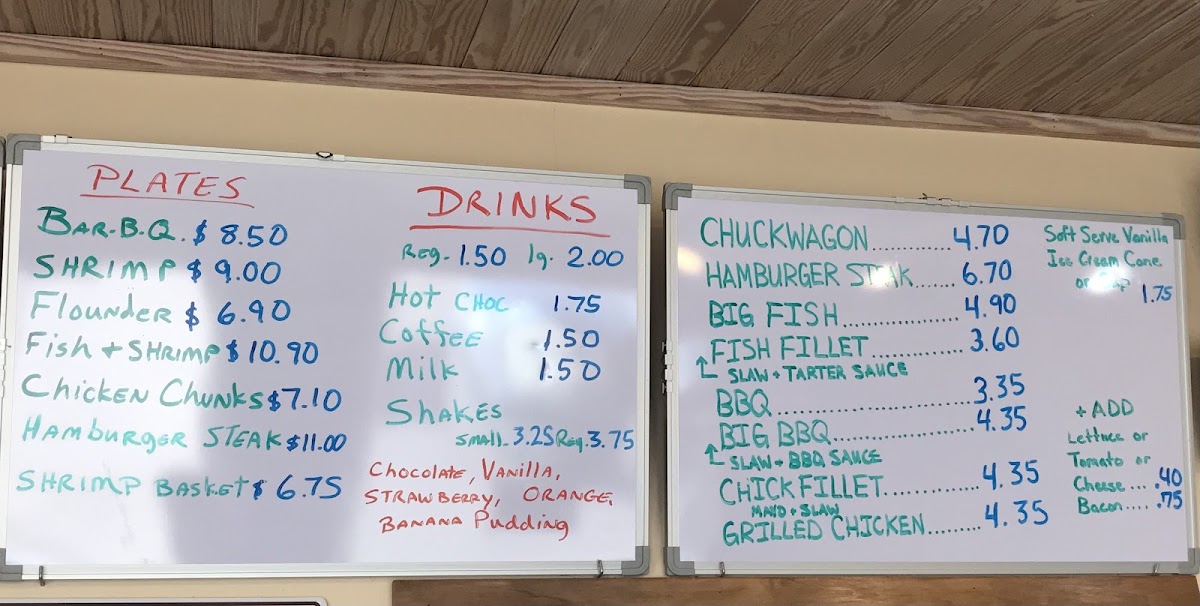 PLATES
BAR-B.Q. $ 8.50
SHRIMP $ 9.00
Flounder $ 6.90
Fish + SHRIMP $ 10.90
Chicken Chunks $7.10
HAMBURGER STEAK $11.00
SHRIMP BASKET $ 6.75
DRINKS
Reg. 1.50 lg. 2.00
Hot CHOC 1.75
Coffee 1.50
Milk 1.50
SHAKES
Small 3.25 Reg. 3.75
Chocolate, Vanilla,
STRAWBERRY, ORANGE,
BANANA Pudding
CHUCKWAGON..........4.70
HAMBURGER STEAK......6.70
BIG FISH...............4.90
FISH FILLET............3.60
SLAW + TARTER SAUCE
BBQ......................3.35
BIG BBQ................4.35
SLAW + BBQ SAUCE
CHICK FILLET...........4.35
MAYO + SLAW
GRILLED CHICKEN........4.35
Soft Serve Vanilla
Ice Cream Cone
or Cup 1.75
+ ADD
Lettuce or
Tomato or
Cheese....40
Bacon.....75